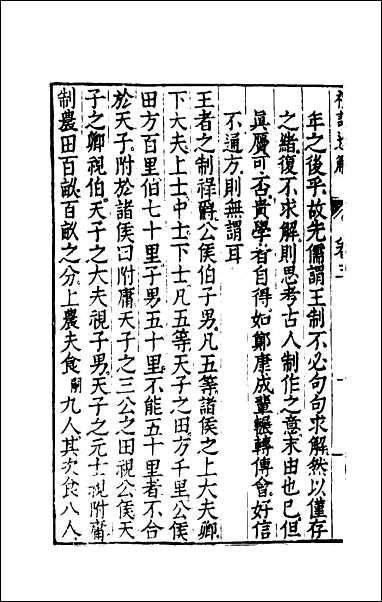 禮記述解 卷三
年之後乎故先儒謂王制不必句句求解然以僅存
之緒復不求解則思考古人制作之意末由也已但
眞贋可否貴學者自得如鄭康成輩輾轉傳會好信
不通方則無謂耳
王者之制祿爵公侯伯子男凡五等諸侯之上大夫卿
下大夫上士中士下士凡五等天子之田方千里公侯
田方百里伯七十里子男五十里不能五十里者不合
於天子附於諸侯曰附庸天子之三公之田視公侯天
子之卿視伯天子之大夫視子男天子之元士視附庸
制農田百畝百畝之分上農夫食嗣九人其次食八人